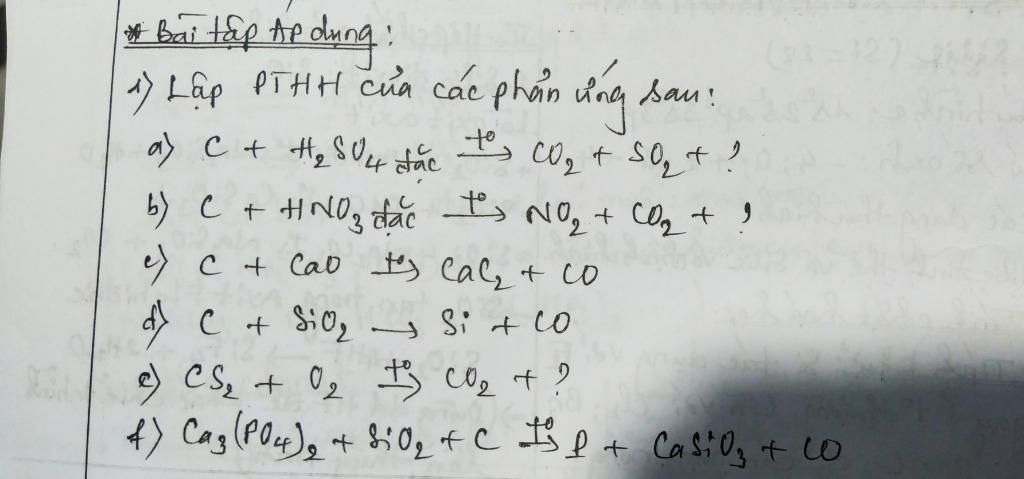 * Bài tập Áp dụng:
1) Lập PTHH của các phản ứng sau:
a) C + H₂SO₄ đặc →(t⁰) CO₂ + SO₂ + ?
b) C + HNO₃ đặc →(t⁰) NO₂ + CO₂ + ?
c) C + CaO →(t⁰) CaC₂ + CO
d) C + SiO₂ → Si + CO
e) CS₂ + O₂ →(t⁰) CO₂ + ?
f) Ca₃(PO₄)₂ + SiO₂ + C →(t⁰) P + CaSiO₃ + CO